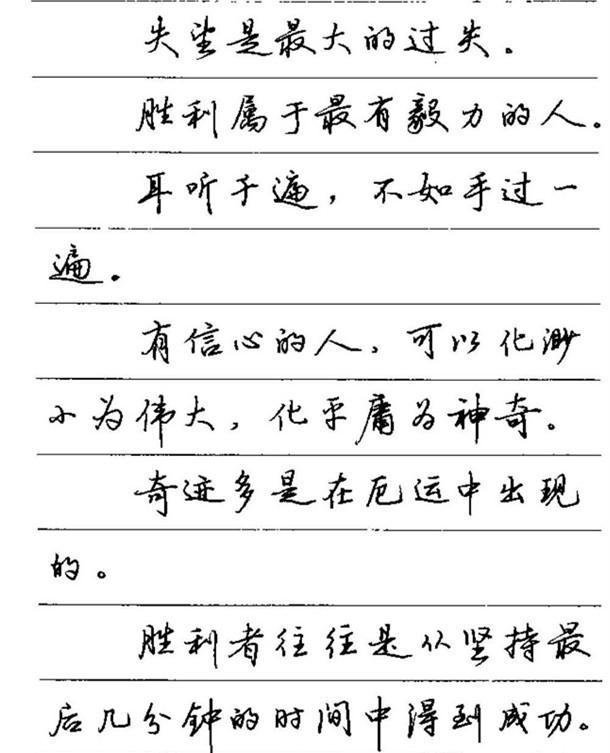 失望是最大的过失。
胜利属于最有毅力的人.
耳听千遍，不如手过一
遍.
有信心的人、可以化渺
小为伟大，化平庸为神奇。
奇迹多是在厄运中出现
的。
胜利者往往是从坚持最
后几分钟的时间中得到成功。